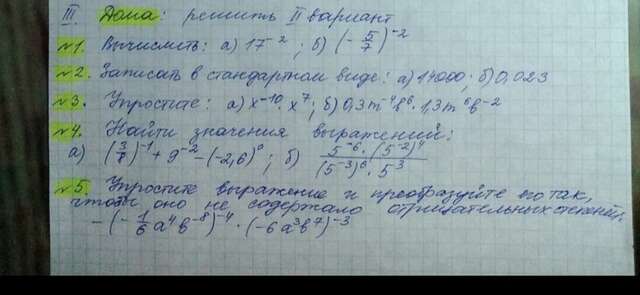 III. Дома: решить II вариант
№1. Вычислить: а) 17⁻²; б) (-5/7)⁻²
№2. Записать в стандартном виде: а) 14000; б) 0,023
№3. Упростите: а) x⁻¹⁰·x⁷; б) 0,3m⁻⁴b⁶·1,3m⁶b⁻²
№4. Найти значения выражений:
а) (3/8)⁻¹+9⁻²-(-2,6)⁰; б) 5⁻⁶·(5⁻²)⁴/(5⁻³)⁶·5³
№5. Упростите выражение и преобразуйте его так,
чтобы оно не содержало отрицательных степеней.
-(-1/6a⁴b⁻⁸)⁻⁴·(-6a³b⁷)⁻³